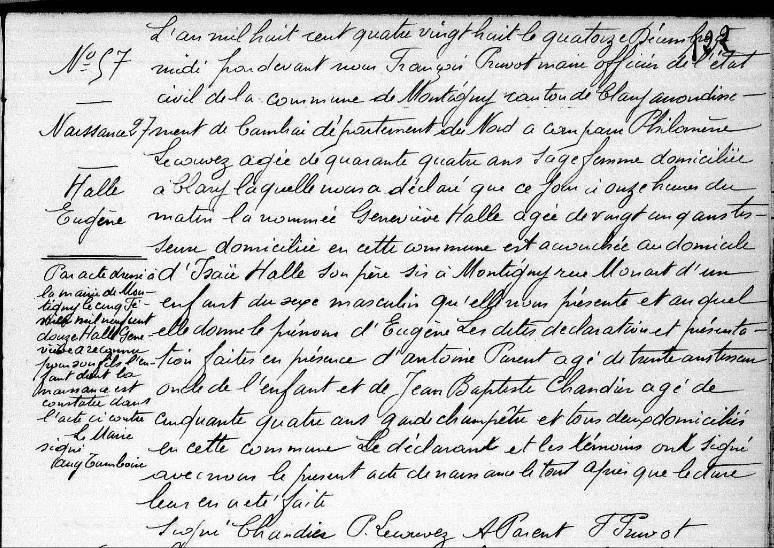 122
L'an mil huit cent quatre vingt huit le quatorze Décembre à
midi pardevant nous François Pruvot maire officier de l'état
civil de la commune de Montigny canton de Clary arrondisse-
ment de Cambrai département du Nord a comparu Philomène
Lecouvez agée de quarante quatre ans sage femme domiciliée
à Clary laquelle nous a déclaré que ce jour à onze heures du
matin la nommée Geneviève Halle agée de vingt cinq ans tis-
seuse domiciliée en cette commune est accouchée au domicile
d'Isaïe Halle son père sis à Montigny rue d'un
enfant du sexe masculin qu'elle nous présente et auquel
elle donne le prénom d'Eugène Les dites déclaration et présenta-
tion faites en présence d'antoine Parent agé de trente ans tisseur
oncle de l'enfant et de Jean Baptiste Chandier agé de
cinquante quatre ans garde champêtre et tous deux domiciliés
en cette commune Le déclarant et les témoins ont signé
avec nous le présent acte de naissance le tout après que lecture
leur en a été faite
Signé Chandier P. Lecouvez A Parent F Pruvot
No 57
Naissance 27
Halle
Eugène
Par acte dressé à
la mairie de Mon-
tigny le cinq Fé-
vrier mil neuf cent
douze Halle Gene-
viève a reconnu
pour son fils l'en-
fant dont la
naissance est
constatée dans
l'acte ci contre
Le Maire
signé